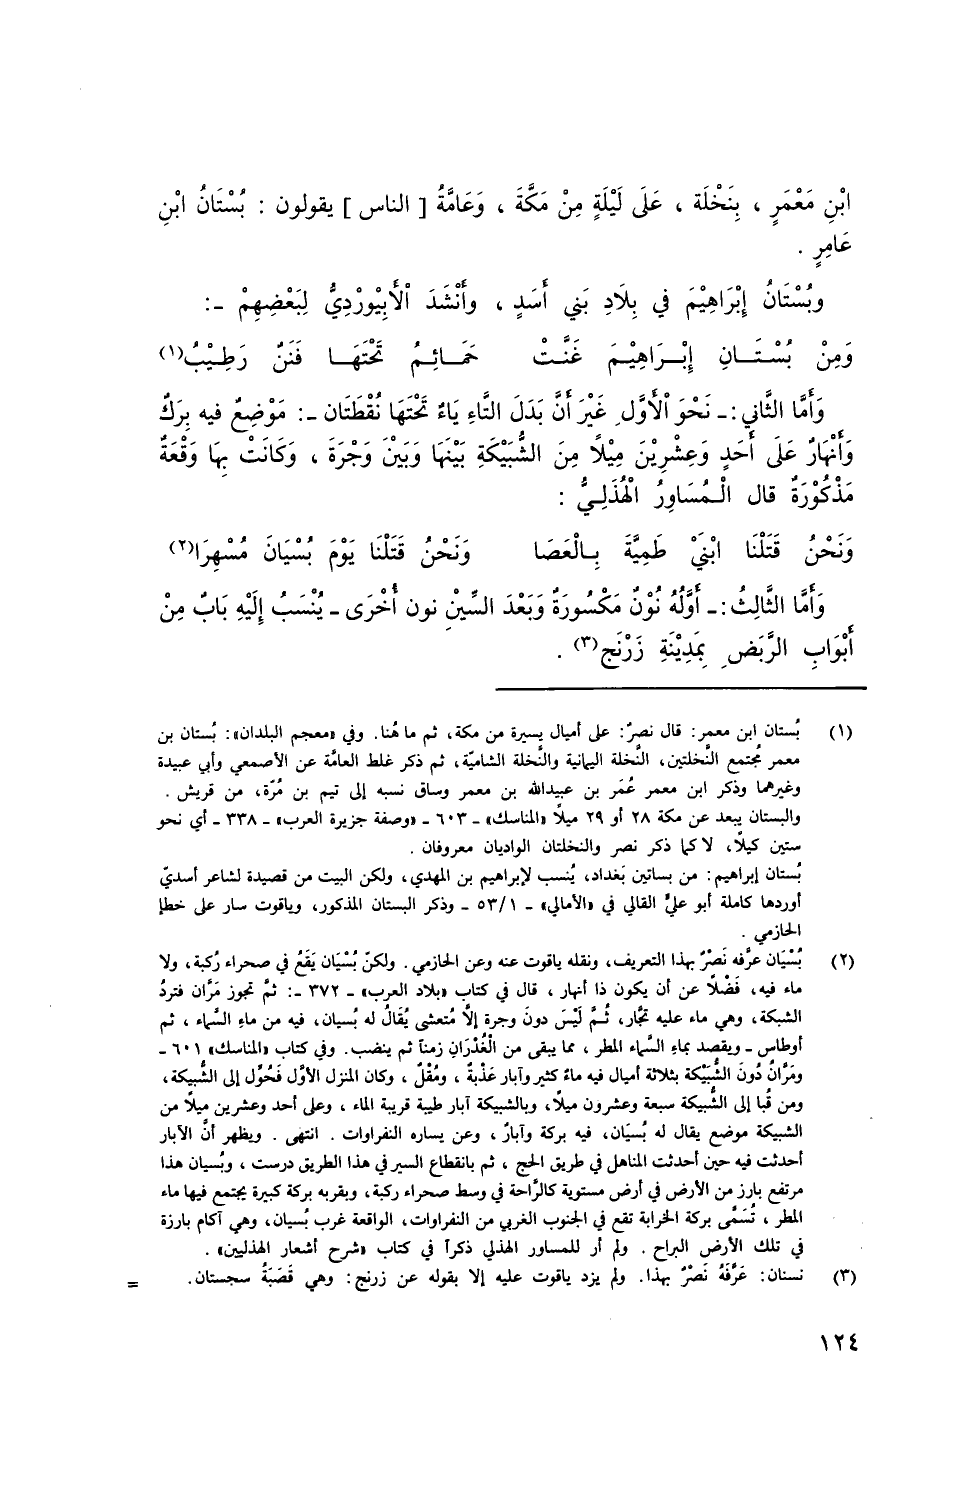 ابْنِ مَعْمَرٍ ، بِنَخْلَة ، عَلَى لَيْلَةٍ مِنْ مَكَّةَ ، وَعَامَّةُ [ الناس ] يقولون : بُسْتَانُ ابْنِ
عَامِرٍ .
وبُسْتَانُ إِبْرَاهِيْمَ في بِلَادِ بَنِي أَسَدٍ ، وأَنْشَدَ الْأَبِيْوَرْدِيُّ لِبَعْضِهِمْ -:
وَمِنْ بُسْتَانِ إِبْرَاهِيْمَ غَنَّتْ حَمَائِمُ تَحْتَهَا فَنَنٌ رَطِيْبُ(١)
وَأَمَّا الثَّاني :- نَحْوَ الْأَوَّلِ غَيْرَ أَنَّ بَدَلَ التَّاءِ يَاءٌ تَحْتَهَا نُقْطَتَان -: مَوْضِعٌ فيه بِرَكٌ
وَأَنْهَارٌ عَلَى أَحَدٍ وَعِشْرِيْنَ مِيْلًا مِنَ الشُّبَيْكَةِ بَيْنَهَا وَبَيْنَ وَجْرَةَ ، وَكَانَتْ بِهَا وَقْعَةٌ
مَذْكُوْرَةٌ قال الْمُسَاوِرُ الْهُذَلِيُّ :
وَنَحْنُ قَتَلْنَا ابْنَيْ طَمِيَّةَ بِالْعَصَا وَنَحْنُ قَتَلْنَا يَوْمَ بُسْيَانَ مُسْهِرَا(٢)
وَأَمَّا الثَّالِثُ :- أَوَّلُهُ نُوْنٌ مَكْسُورَةٌ وَبَعْدَ السِّيْنِ نون أُخْرَى - يُنْسَبُ إِلَيْهِ بَابٌ مِنْ
أَبْوَابِ الرَّبَضِ بِمَدِيْنَةِ زَرْنَج(٣) .
(١) بُستان ابن معمر: قال نصرٌ: على أميال يسيرة من مكة، ثم ما هُنا. وفي «معجم البلدان»: بُستان بن
معمر مُجتمع النَّخلتين، النَّخلة اليمانية والنَّخلة الشاميّة، ثم ذكر غلط العامّة عن الأصمعي وأبي عبيدة
وغيرهما وذكر ابن معمر عُمَر بن عبيدالله بن معمر وساق نسبه إلى تيم بن مُرّة، من قريش .
والبستان يبعد عن مكة ٢٨ أو ٢٩ ميلاً «المناسك» - ٦٠٣ - «وصفة جزيرة العرب» - ٣٣٨ - أي نحو
ستين كيلاً، لا كما ذكر نصر والنخلتان الواديان معروفان .
بُستان إبراهيم: من بساتين بَغداد، يُنسب لإبراهيم بن المهدي، ولكن البيت من قصيدة لشاعر أسديّ
أوردها كاملة أبو عليٍّ القالي في «الأمالي» - ٥٣/١ - وذكر البستان المذكور، وياقوت سار على خطإ
الحازمي .
(٢) بُسْيَان عرَّفه نَصْرٌ بهذا التعريف، ونقله ياقوت عنه وعن الحازمي. ولكنّ بُسْيَان يَقَعُ في صحراء رُكبة، ولا
ماء فيه، فَضْلًا عن أن يكون ذا أنهار ، قال في كتاب «بلاد العرب» - ٣٧٢ -: ثمَّ تجوز مَرَّان فتردُ
الشبكة، وهي ماء عليه تجَّار، ثُمَّ لَيْسَ دونَ وجرة إلاَّ مُتعشى يُقَالُ له بُسيان، فيه من ماءِ السَّماء ، ثم
أوطاس - ويقصد بماءِ السَّماء المطر ، مما يبقى من الْغُدْرَانِ زمناً ثم ينضب. وفي كتاب «المناسك» ٦٠١ -
ومَرَّانُ دُونَ الشُّبَيْكة بثلاثة أميال فيه ماءٌ كثير وآبار عَذْبةٌ ، ومُقْلٌ ، وكان المنزل الأوَّل فَحُوِّل إلى الشُّبيكة،
ومن قُبا إلى الشُّبيكة سبعة وعشرون ميلاً، وبالشبيكة آبار طيبة قريبة الماء ، وعلى أحد وعشرين ميلاً من
الشبيكة موضع يقال له بُسيَان، فيه بركة وآبارٌ ، وعن يساره النفراوات . انتهى . ويظهر أنَّ الآبار
أحدثت فيه حين أحدثت المناهل في طريق الحج ، ثم بانقطاع السير في هذا الطريق درست ، وبُسيان هذا
مرتفع بارز من الأرض في أرض مستوية كالرَّاحة في وسط صحراء ركبة، وبقربه بركة كبيرة يجتمع فيها ماء
المطر ، تُسَمَّى بركة الخرابة تقع في الجنوب الغربي من النفراوات، الواقعة غرب بُسيان، وهي آكام بارزة
في تلك الأرض البراح . ولم أر للمساور الهذلي ذكراً في كتاب «شرح أشعار الهذليين» .
(٣) نسنان: عَرَّفَهُ نَصْرٌ بهذا. ولم يزد ياقوت عليه إلا بقوله عن زرنج: وهي قَصَبَةُ سجستان. =
١٢٤